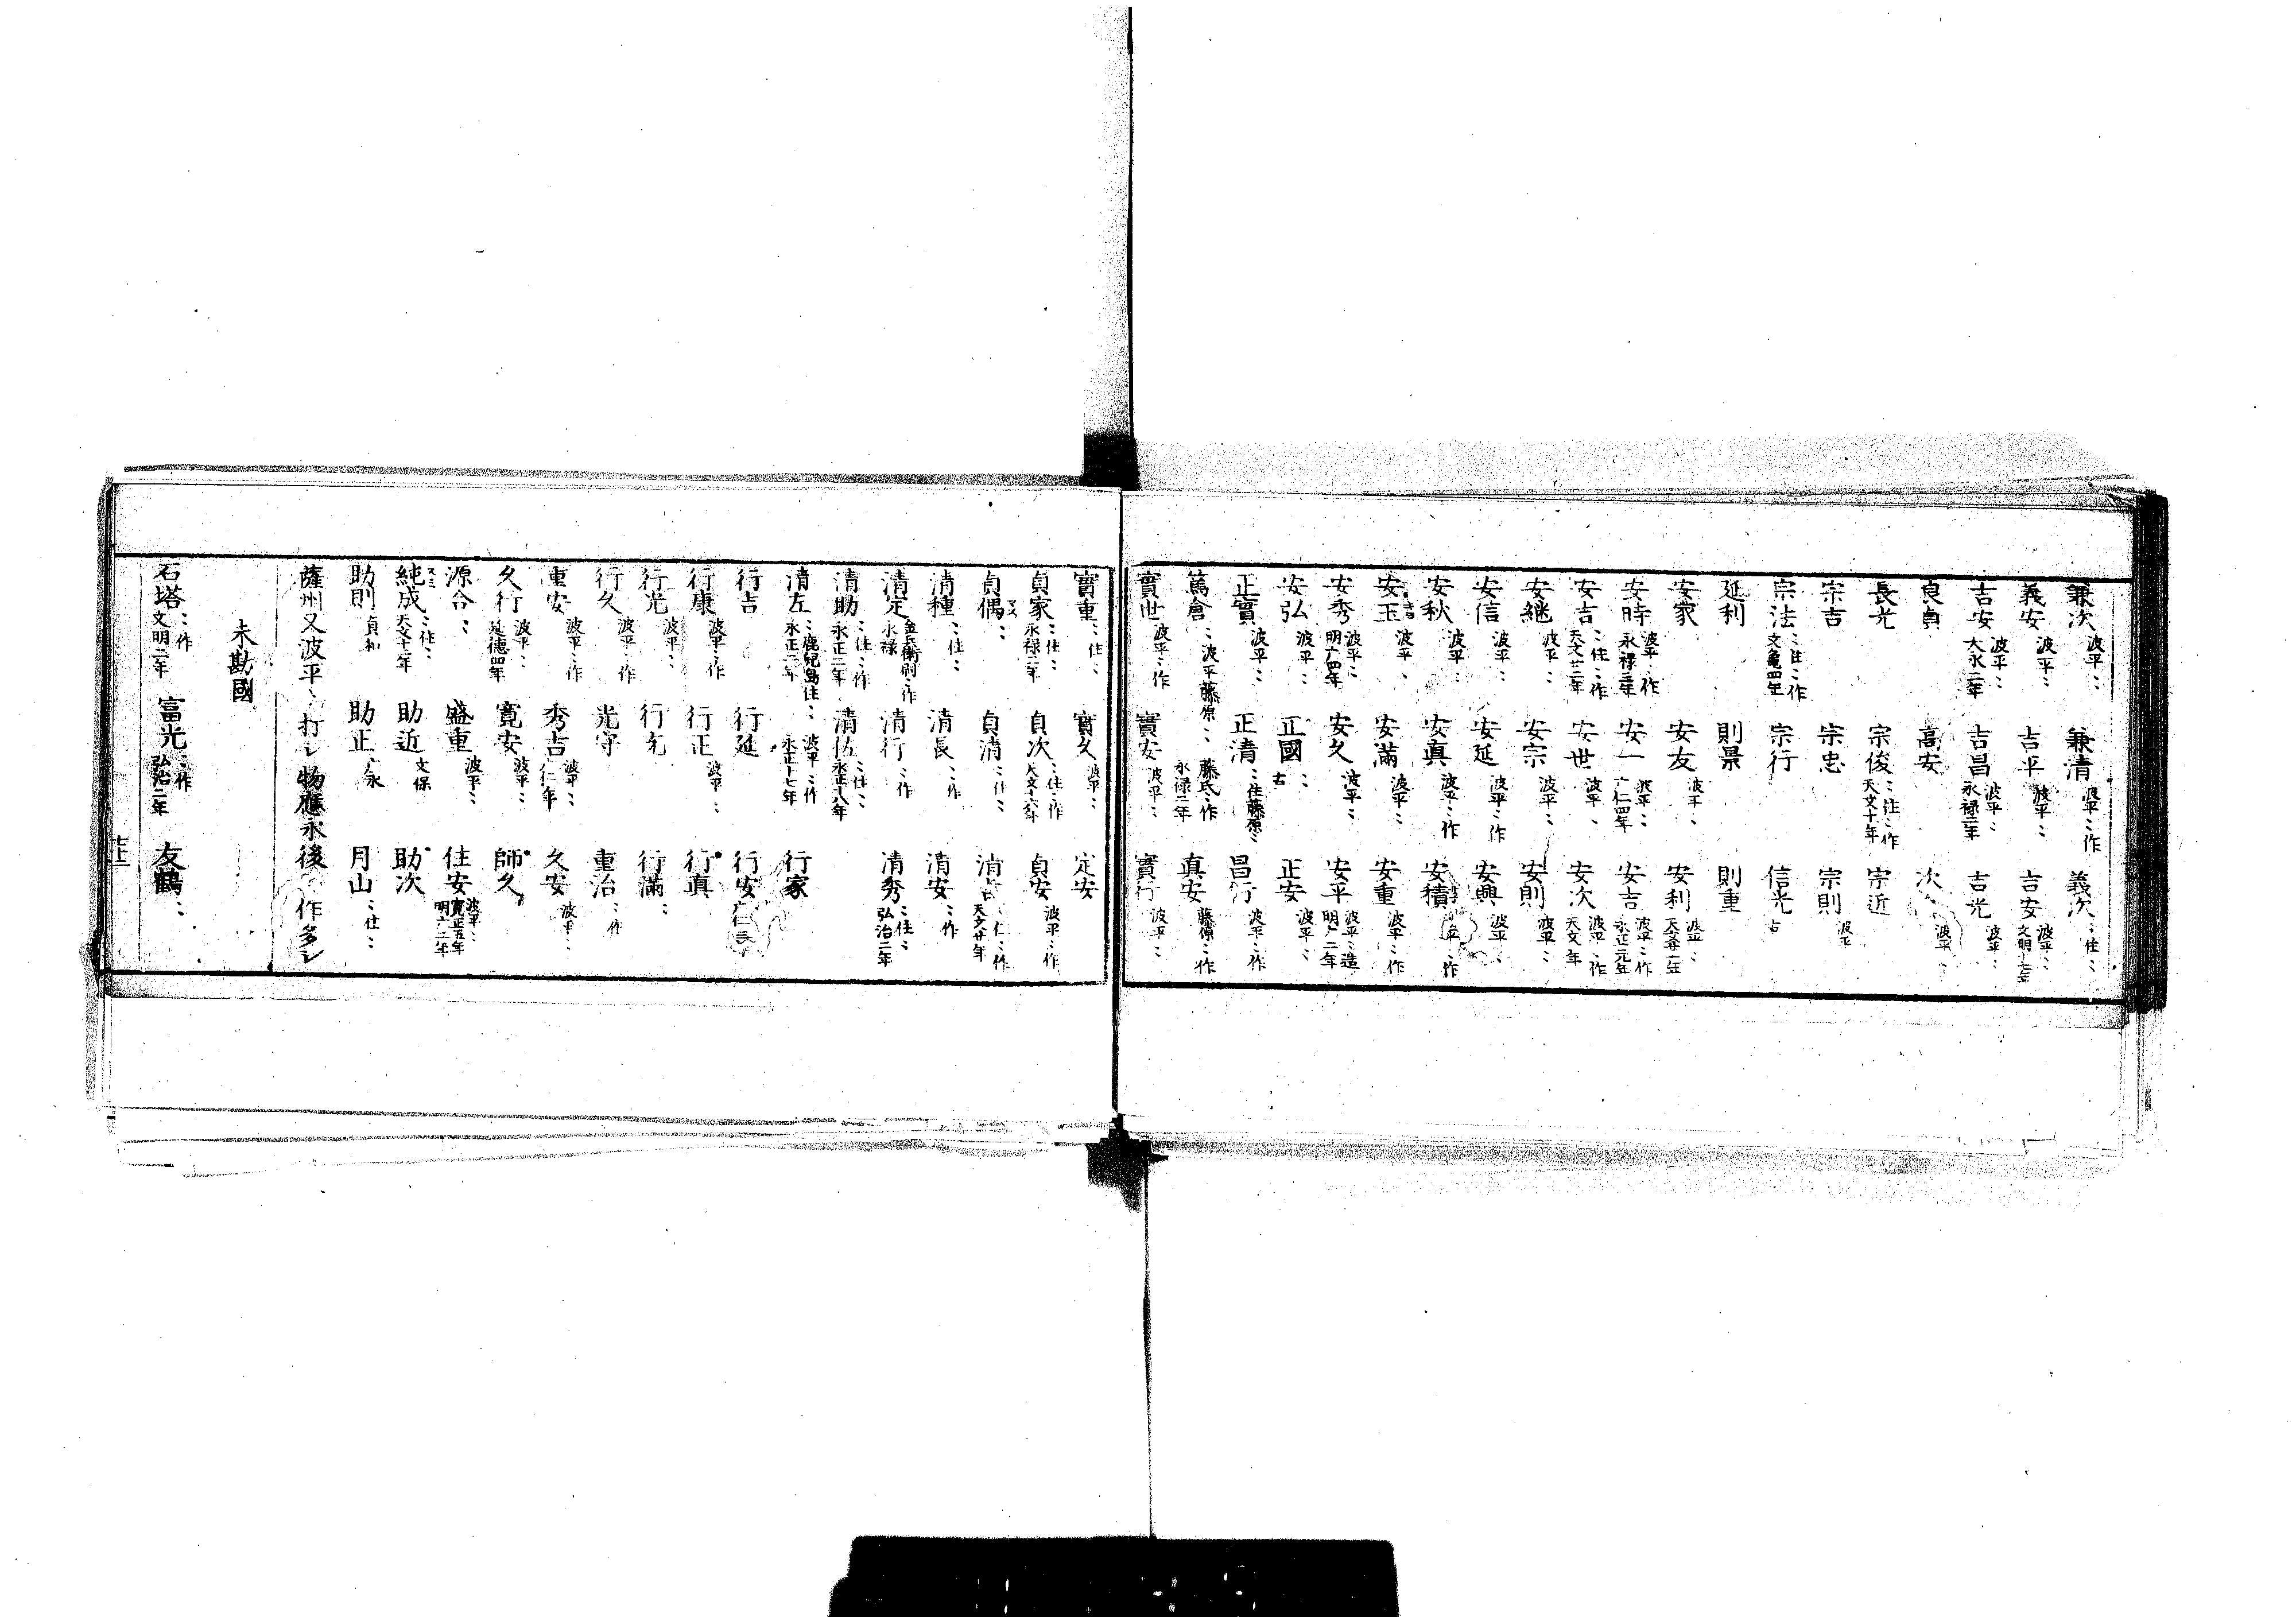 兼次 波平〻 兼清 波平〻作 義次 〻住〻
義安 波平〻 吉平 波平〻 吉安 波平〻 文明十七年
吉安 波平〻 大永二年 吉昌 波平〻 永禄二年 吉光 波平〻
良貞 高安 次 波平
長光 宗俊 〻住〻作 天文十年 宗近
宗吉 宗忠 宗則 波平
宗法 〻住〻作 文亀四年 宗行 信光 古
延利 則景 則重
安家 安友 波平〻 安利 波平〻
安時 波平〻作 永禄三年 安一 波平〻 广仁四年 安吉 波平〻作 永正元年
安吉 〻住〻作 天文廿二年 安世 波平〻 安次 波平〻作 天文年
安継 波平〻 安宗 波平〻 安則 波平〻
安信 波平〻 安延 波平〻作 安興 波平〻
安秋 波平〻 安真 波平〻作 安積 波平〻作
安玉 波平〻 安満 波平〻 安重 波平〻作
安秀 波平〻 明广四年 安久 波平〻 安平 波平〻造 明广二年
安弘 波平〻 正國〻 古 正安 波平〻
正實 波平〻 正清 〻住藤原〻 昌行 波平〻作
篤倉 〻波平藤原〻 藤氏〻作 永禄二年 真安 藤原〻作
實世 波平〻作 實安 波平〻 實行 波平〻
實重 〻住〻 實久 波平〻 定安
貞家 〻住〻 永禄二年 貞次 〻住〻作 大文十六年 貞安 波平〻作
貞偶〻 貞清〻住〻 清 〻作 天文廿年
清種 〻住〻 清長 〻作 清安 〻作
清定 金兵衛嗣〻作 永禄 清行 〻作 清秀 〻住〻 弘治二年
清助 〻住〻作 永正二年 清佐 〻住〻 永正十八年
清左 〻鹿児島住〻 永正二年 波平〻作 永正十七年 行家
行吉 行延 行安 广仁
行康 波平〻作 行正 波平〻 行真
行光 波平〻 行充 行満〻
行久 波平〻作 光守 重治 〻作
重安 波平〻作 秀吉 波平〻 久安 波平〻
久行 波平〻 延徳四年 寛安 波平〻 師久
源合〻 盛重 波平〻 住安 波平〻 寛正五年 明广二年
純成 〻住〻 天文十二年 助近 文保 助次
助則 貞和 助正 月山 〻住〻
薩州又波平〻打シ物應永後ノ作多シ
未勘國
石塔 〻作 文明二年 富光 〻作 弘治二年 友鶴〻